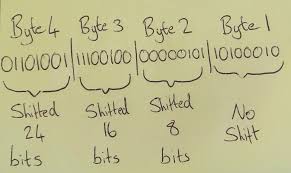 Byte 4 Byte 3 Byte 2 Byte 1
01101001|11100100|00000101|10100010
Shifted Shifted Shifted No
24 16 8 Shift
bits bits bits